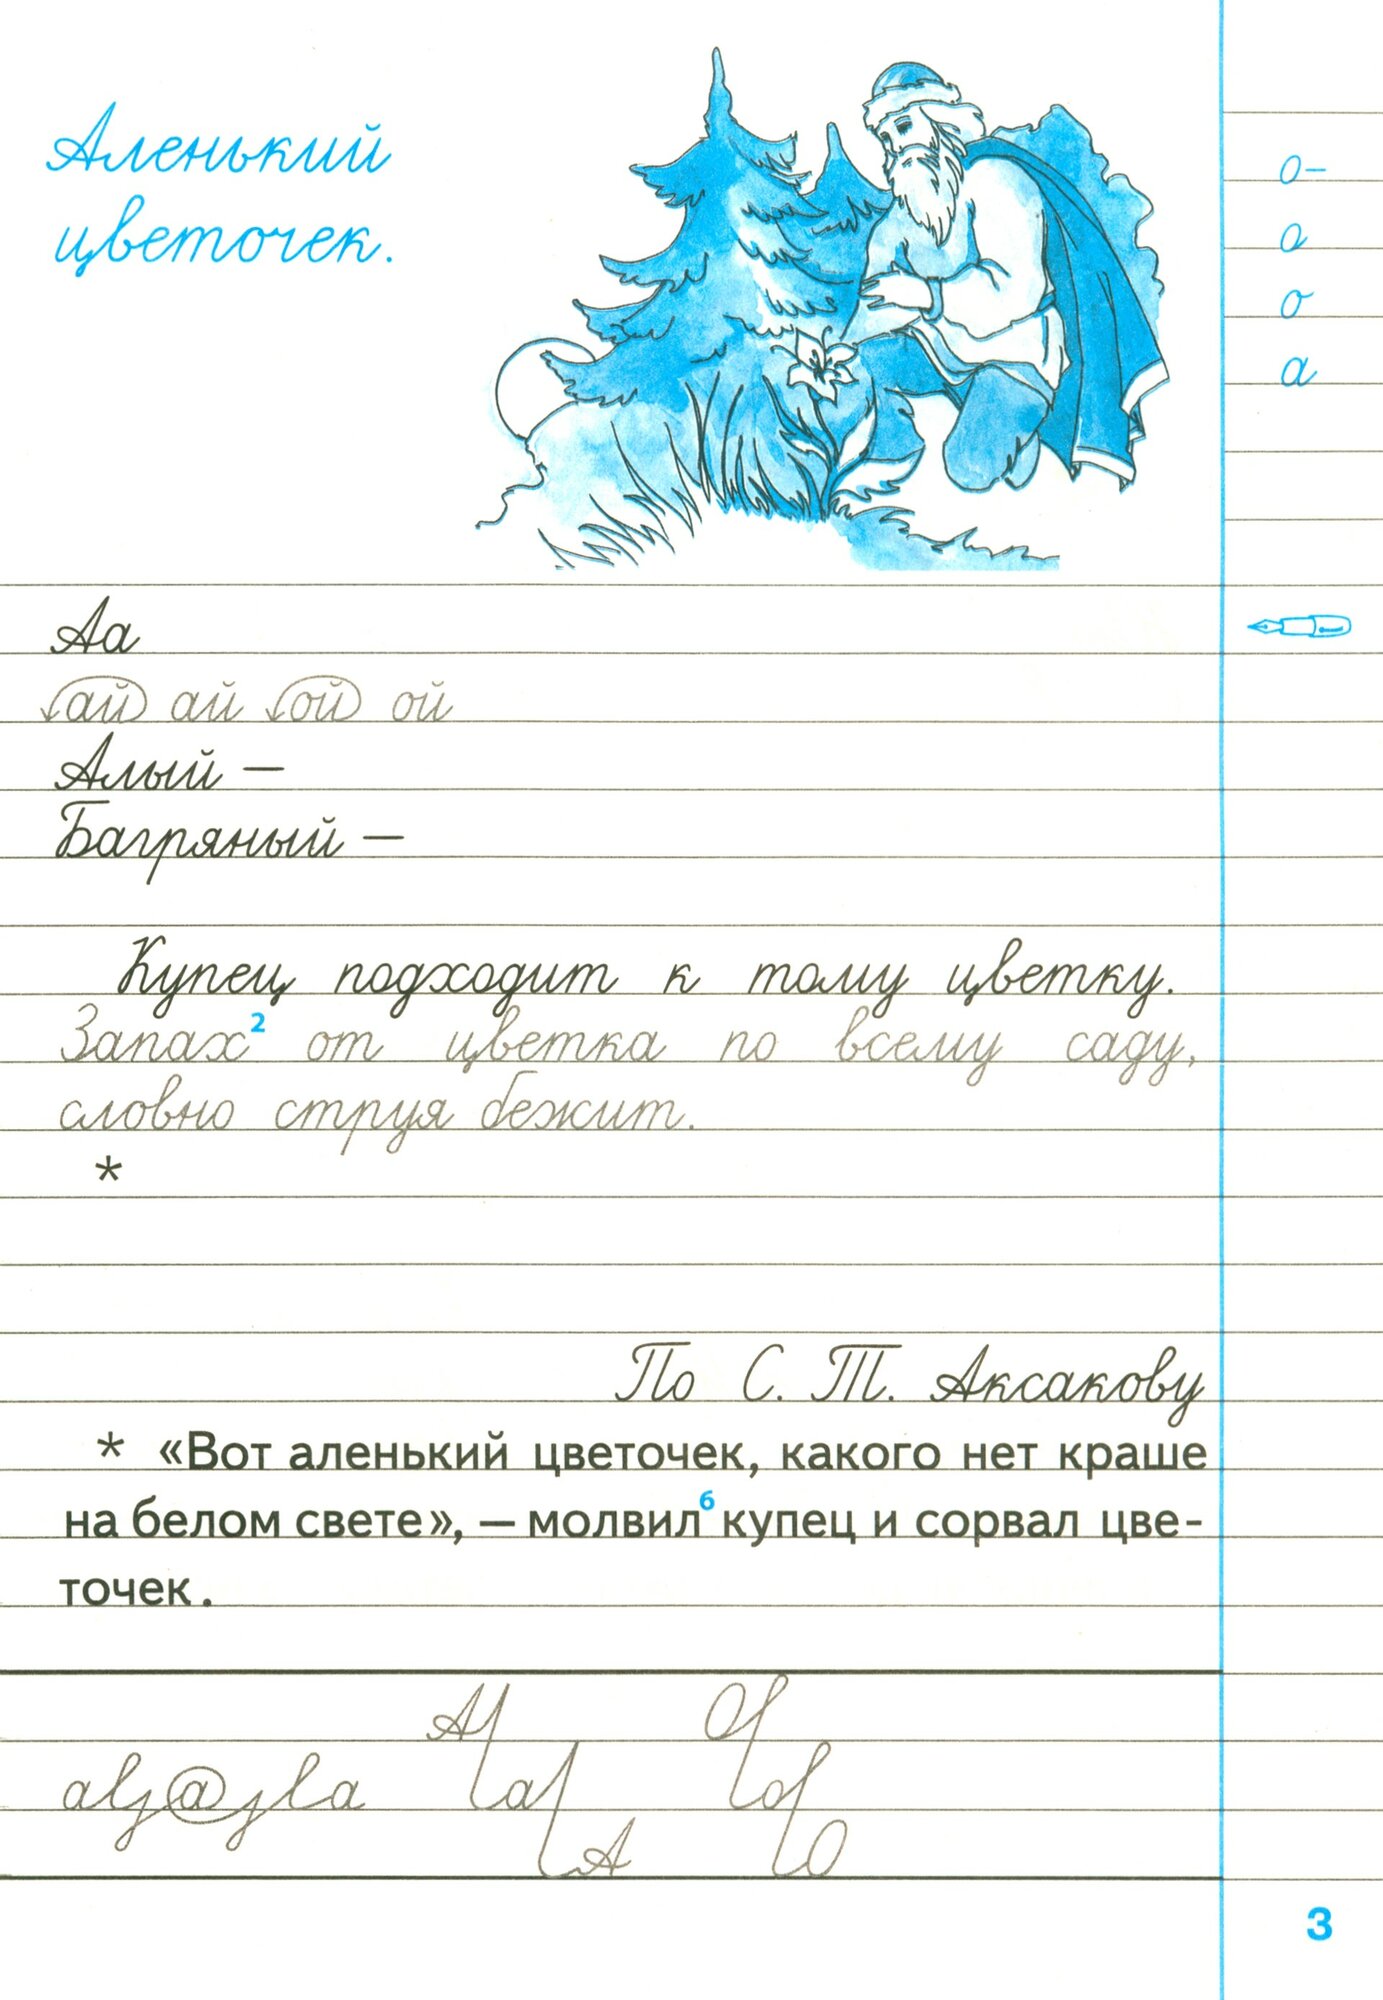 Аленький
цветочек.
о-
о
о
а
Аа
ай ай ой ой
Алый —
Багряный —
Купец подходит к тому цветку.
Запах² от цветка по всему саду,
словно струя бежит.
*
По С. Т. Аксакову
* «Вот аленький цветочек, какого нет краше
на белом свете», — молвил⁶ купец и сорвал цве-
точек.
А О
а о
А О
3